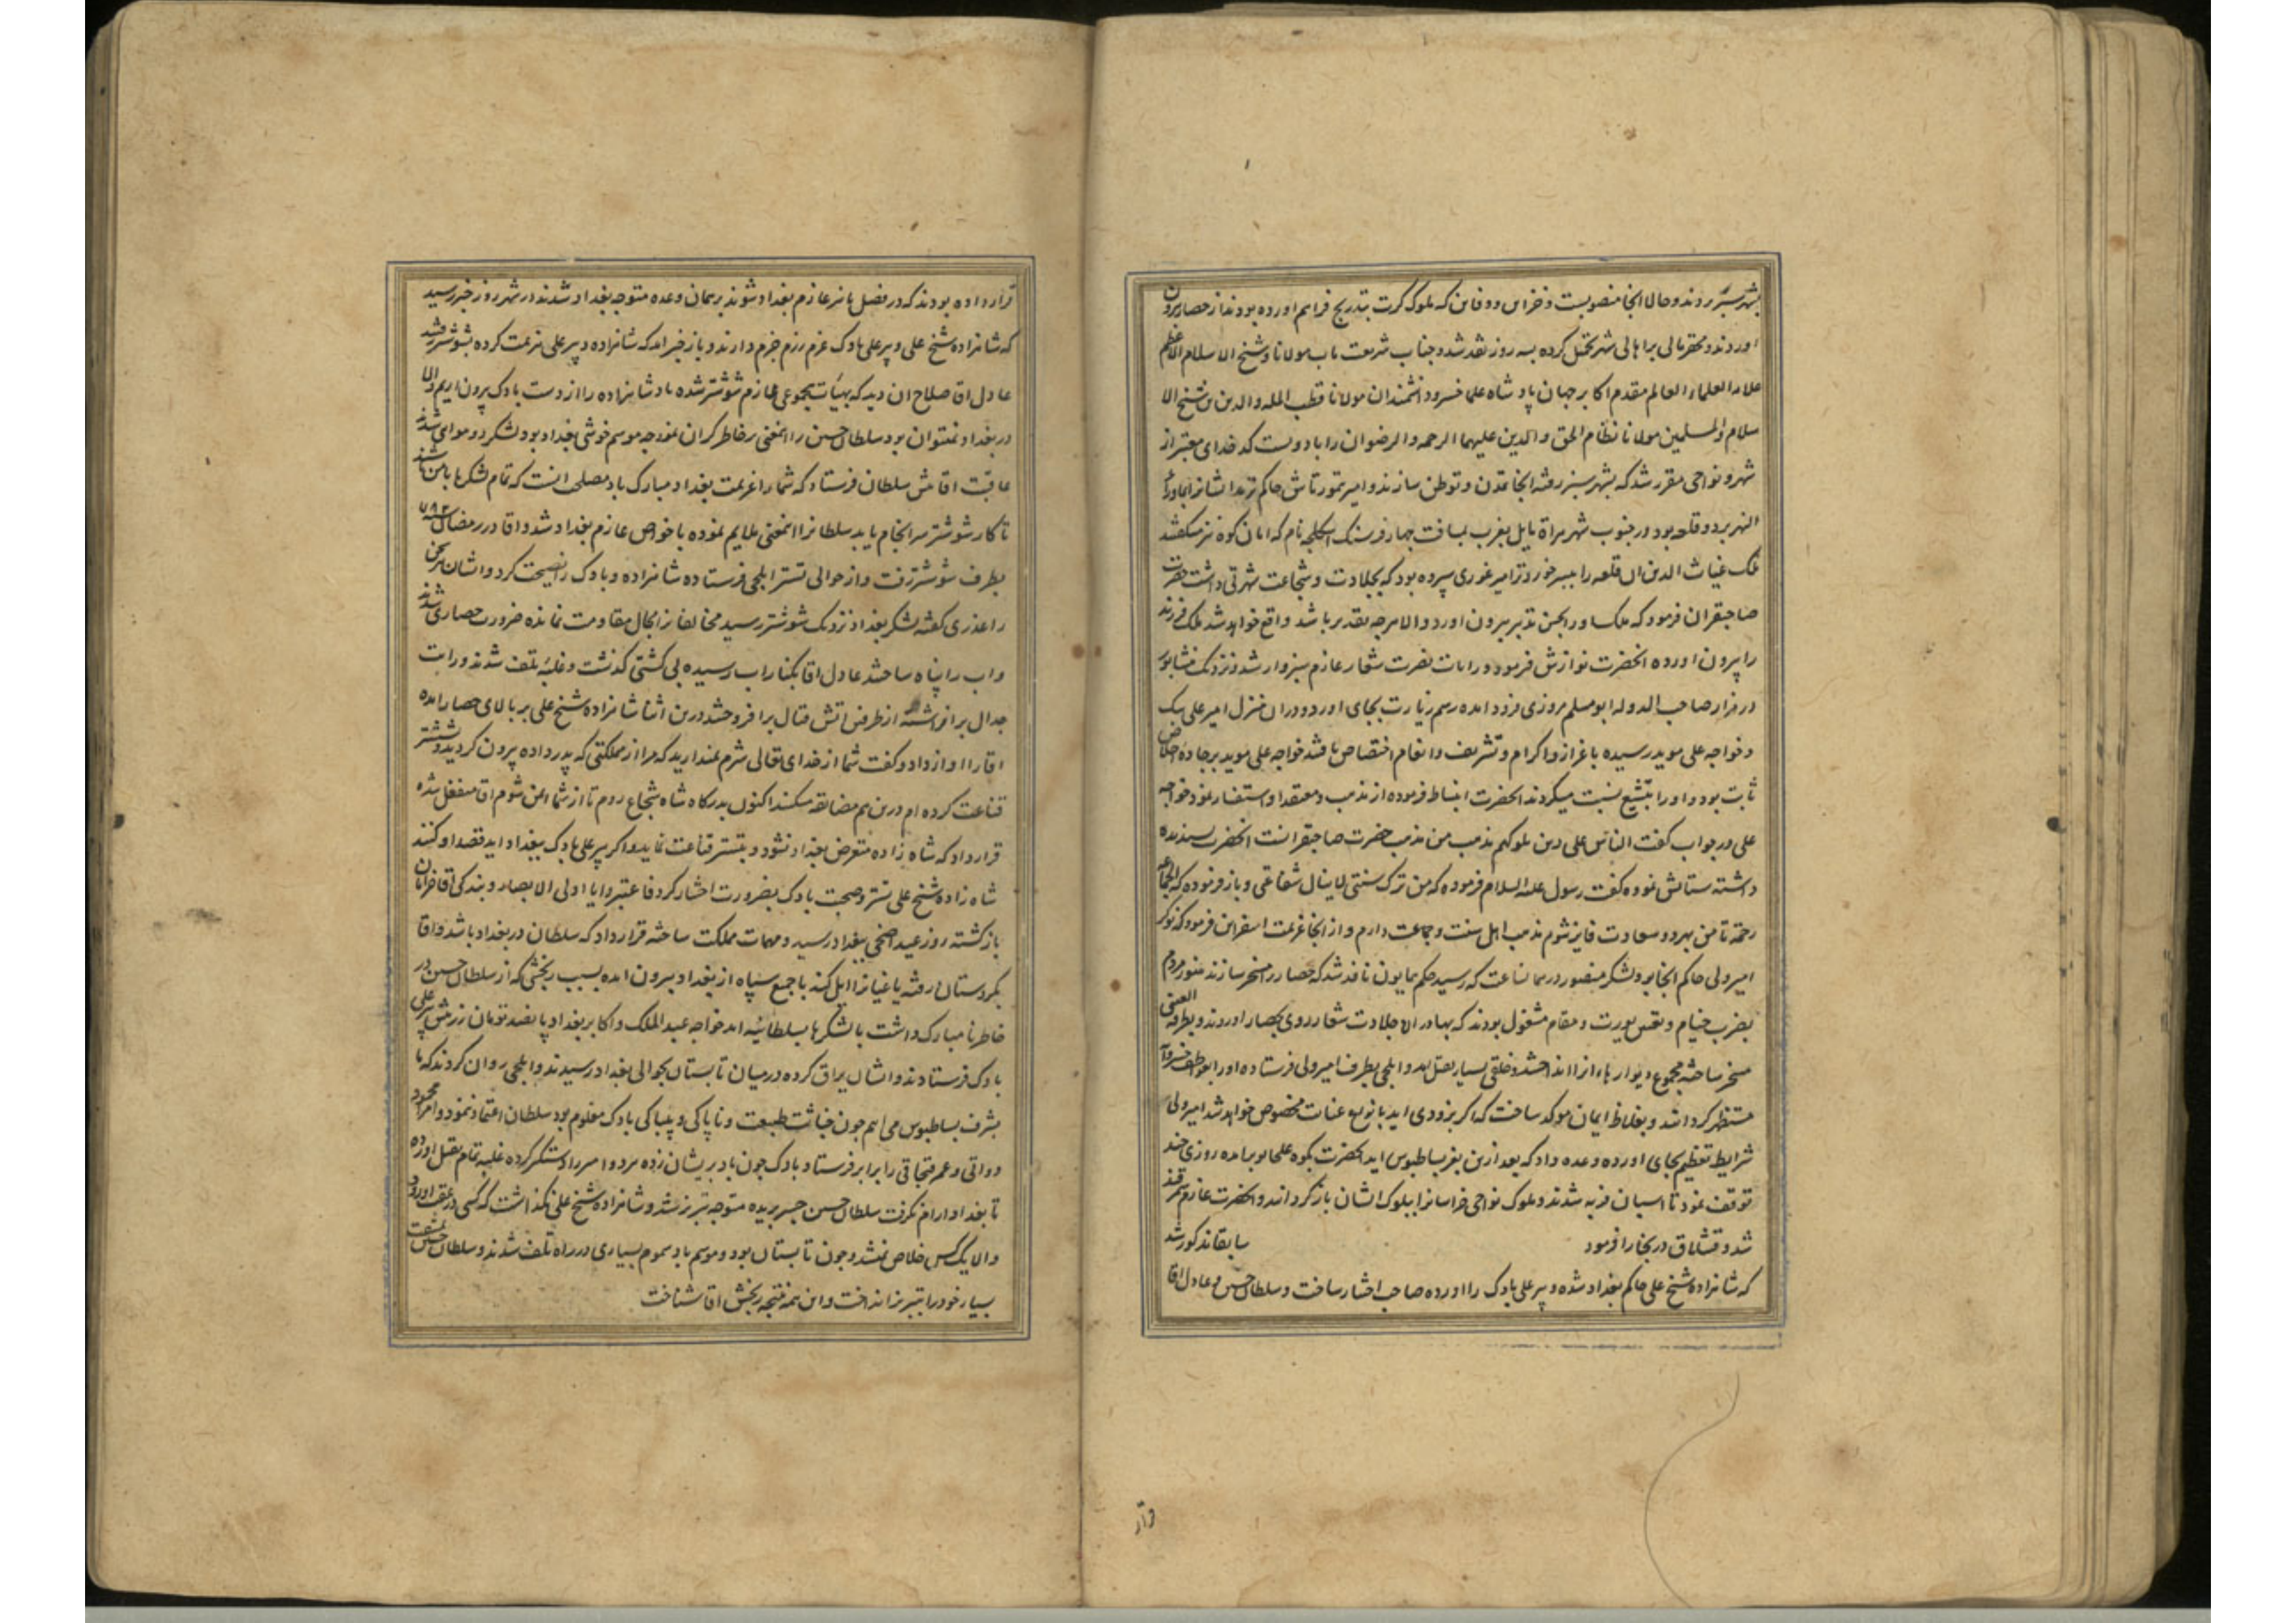 بشهر سبز بردند و حالا انجا منصوبست و خزاین و دفاین که ملوک کرت بتدریج فراهم اورده بودند از حصار بیرون
اوردند و محقر مالی بر اهالی شهر تحمل کرده بسه روز نقد شد و جناب شریعت ماب مولانا و شیخ الاسلام الاعظم
علامه العلماء العالم مقدم اکابر جهان پادشاه علما خسرو دانشمندان مولانا قطب المله والدین بن شیخ الا
سلام والمسلمین مولانا نظام الحق والدین علیهما الرحمه والرضوان را با دویست کدخدای معتبر از
شهر و نواحی مقرر شد که بشهر سبز رفته انجا تمدن و توطن سازند و امیر تمورتاش حاکم ترمد ایشانرا بماوراء
النهر برد و قلعه بود در جنوب شهر هراة مایل بغرب بمسافت چهار فرسنک اسکلجه نام که امان کوه نیز میکفتند
ملک غیاث الدین ان قلعه را بپسر خوردتر امیر غوری سپرده بود که بجلادت و شجاعت شهرتی داشت حضرت
صاحبقران فرمود که ملک او را بحسن تدبیر بیرون اورد والا هرچه تقدیر باشد واقع خواهد شد ملک فرزند
را بیرون اورده انحضرت نوازش فرمود و رایات نصرت شعار عازم سبزوار شد و نزدیک نیشابور
در مزار صاحب الدوله ابو مسلم مروزی فرود امده رسم زیارت بجای اورد و دران منزل امیر علی بیک
و خواجه علی موید رسیده باعزاز و اکرام و تشریف و انعام اختصاص یافتند خواجه علی موید بر جاده اخلاص
ثابت بود و او را بتشیع نسبت میکردند انحضرت انبساط فرموده از مذهب و معتقد او استفسار نمود خواجه
علی در جواب کفت الناس علی دین ملوکهم مذهب من مذهب حضرت صاحبقرانست انحضرت پسندیده
داشته ستایش نموده کفت رسول علیه السلام فرموده که من ترک سنتی لا ینال شفاعتی و باز فرموده که الجماعه
رحمة تا من بهر دو سعادت فایز شوم مذهب اهل سنت و جماعت دارم و از انجا عزیمت اسفراین فرمود که نوکر
امیر ولی حاکم انجا بود و لشکر منصور در همان ساعت که رسید حکم همایون نافذ شد که حصار را مسخر سازند هنوز مردم
بضرب خیام و تعیین یورت و مقام مشغول بودند که بهادران جلادت شعار روی بحصار اوردند و بطرفه العینی
مسخر ساخته مجموع دیوارها را انداختند و خلقی بسیار بقتل امد و ایلچی بطرف امیر ولی فرستاده او را بعواطف خسروانه
مستظهر کردانید و بغلاظ ایمان موکد ساخت که اکر بزودی اید بانواع عنایت مخصوص خواهد شد امیر ولی
شرایط تعظیم بجای اورده وعده داد که بعد ازین بعز بساطبوس اید انحضرت بکوه علجابو برامده روزی چند
توقف نمود تا اسبان فربه شدند و ملوک نواحی خراسانرا ببلوک ایشان بازکردانید و انحضرت عازم سمرقند
شد و قشلاق در بخارا فرمود سابقا مذکور شد
که شاهزاده شیخ علی حاکم بغداد شده و پیر علی بادک را اورده صاحب اختیار ساخت و سلطان حسین و عادل اقا
قرار
قرار داده بودند که در فصل پائیز عازم بغداد شوند بر همان وعده متوجه بغداد شدند در شهرزور خبر رسید
که شاهزاده شیخ علی و پیر علی بادک عزم رزم جزم دارند و باز خبر امد که شاهزاده و پیر علی هزیمت کرده بشوشتر رفتند
عادل اقا صلاح ان دید که بهیات مجموعی عازم شوشتر شده شاهزاده را از دست بادک بیرون اریم والا
در بغداد نمیتوان بود سلطان حسین را اینمعنی بر خاطر کران نمود چه موسم خوشی بغداد بود لشکر دو هوای شدند
عاقبت اقا پیش سلطان فرستاد که شما را عزیمت بغداد مبارک باد مصلحی انست که تمام لشکرها با من باشند
تا کار شوشتر سرانجام یابد سلطانرا اینمعنی ملایم نموده با خواص عازم بغداد شد و اقا در رمضان ۷۸۲
بطرف شوشتر رفت و از حوالی تستر ایلچی فرستاده شاهزاده و بادک را نصیحت کرد و ایشان هر سخن
را عذری کفتند لشکر بغداد نزدیک شوشتر رسید مخالفانرا مجال مقاومت نمانده ضرورت حصاری شدند
و اب را پناه ساختند عادل اقا بکنار اب رسیده بی کشتی کذشت و غلبه تلف شدند و رایت
جدال برافراشته از طرفین اتش قتال برافروختند درین اثنا شاهزاده شیخ علی بر بالای حصار امده
اقا را اواز داد و کفت شما از خدای تعالی شرم نمیدارید که مرا از مملکتی که پدر داده بیرون کردید و بشوشتر
قناعت کرده ام درین هم مضایقه میکنند اکنون بدرکاه شاه شجاع روم تا از شما ایمن شوم اقا منفعل شده
قرار داد که شاه زاده متعرض بغداد نشود و بتستر قناعت نماید و اکر پیر علی بادک ببغداد اید قصد او کنند
شاه زاده شیخ علی تستر و صحبت بادک بضرورت اختیار کرد فاعتبروا یا اولی الابصار و بندکی اقا خرامان
بازکشته روز عید اضحی ببغداد رسید و مهمات مملکت ساخته قرار داد که سلطان در بغداد باشد و اقا
بکردستان رفته یاغیانرا ایل کند با جمیع سپاه از بغداد بیرون امده بسبب رنجشی که از سلطان حسین در
خاطر نامبارک داشت با لشکرها بسلطانیه امد خواجه عبد الملک و اکابر بغداد پانصد تومان زر پیش پیر علی
بادک فرستادند و ایشان یراق کرده در میان تابستان بحوالی بغداد رسیدند و ایلچی روان کردند که ما
بشرف بساطبوس می ایم چون خباثت طبیعت و ناپاکی و بیباکی بادک معلوم بود سلطان اعتماد ننمود و امیر محمود
دواتی و عمر قبچاقی را برابر فرستاد بادک چون باد بریشان زده هر دو امیر را دستکیر کرده غلبه تمام بقتل اورده
تا بغداد ارام نکرفت سلطان حسین جسر بریده متوجه تبریز شد و شاهزاده شیخ علی نکذاشت که کسی در عقب او رود
والا یک کس خلاص نمیشد و چون تابستان بود و موسم باد سموم بسیاری در راه تلف شدند و سلطان حسین بمشقت
بسیار خود را بتبریز انداخت و این همه نتیجه رنجش اقا شناخت